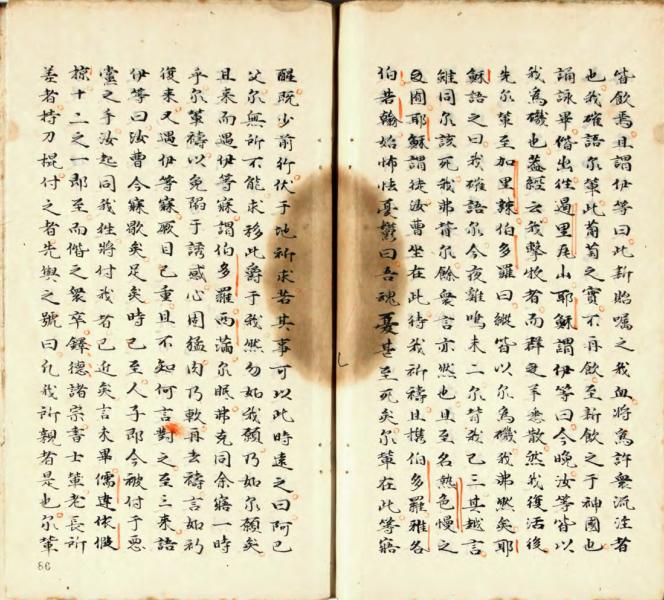 皆飲焉且謂伊等曰此新貽嘱之我血將為許衆流注者
也我確語尔軰此葡萄之實不再飲至新飲之于神國也
誦詠畢偕出徃過里瓦山耶穌謂伊等曰今晚汝等皆以
我為礙也盖經云我擊牧者而群之羊悉散然我復活後
先尔軰至加里辣伯多羅曰縱皆以尔為礙我弗然矣耶
穌語之曰我確語尔今夜雞鳴未二尔背我已三其越言
雖同尔該死我弗背尔餘衆言亦然也且至名熱色慢之
囩耶穌謂徒汝曹坐在此待我祈禱且携伯多羅雅各
伯若翰始怖怯憂鬱曰吾魂憂甚至死矣尔軰在此等寤
醒既少前行伏于地祈求若其事可以此時遠之曰阿巴
父尔無所不能求移此爵于我然勿如我願乃如尔願矣
且来而遇伊等寐謂伯多羅西满尔眠弗克同余寤一時
乎尔軰禱以免陷于誘感心固猛肉乃軟再去禱言如初
復来又遇伊等寐厥目已重且不知何言對之至三来語
伊等曰汝曹今寐歇矣足矣時已至人子即今被付于悪
黨之手汝起同我徃將付我者已近矣言未畢儒達依斯
掠十二之一即至而偕之衆卒鐸德諸宗書士軰老長所
差者持刀棍付之者先與之號曰凢我所親者是也尔軰
86